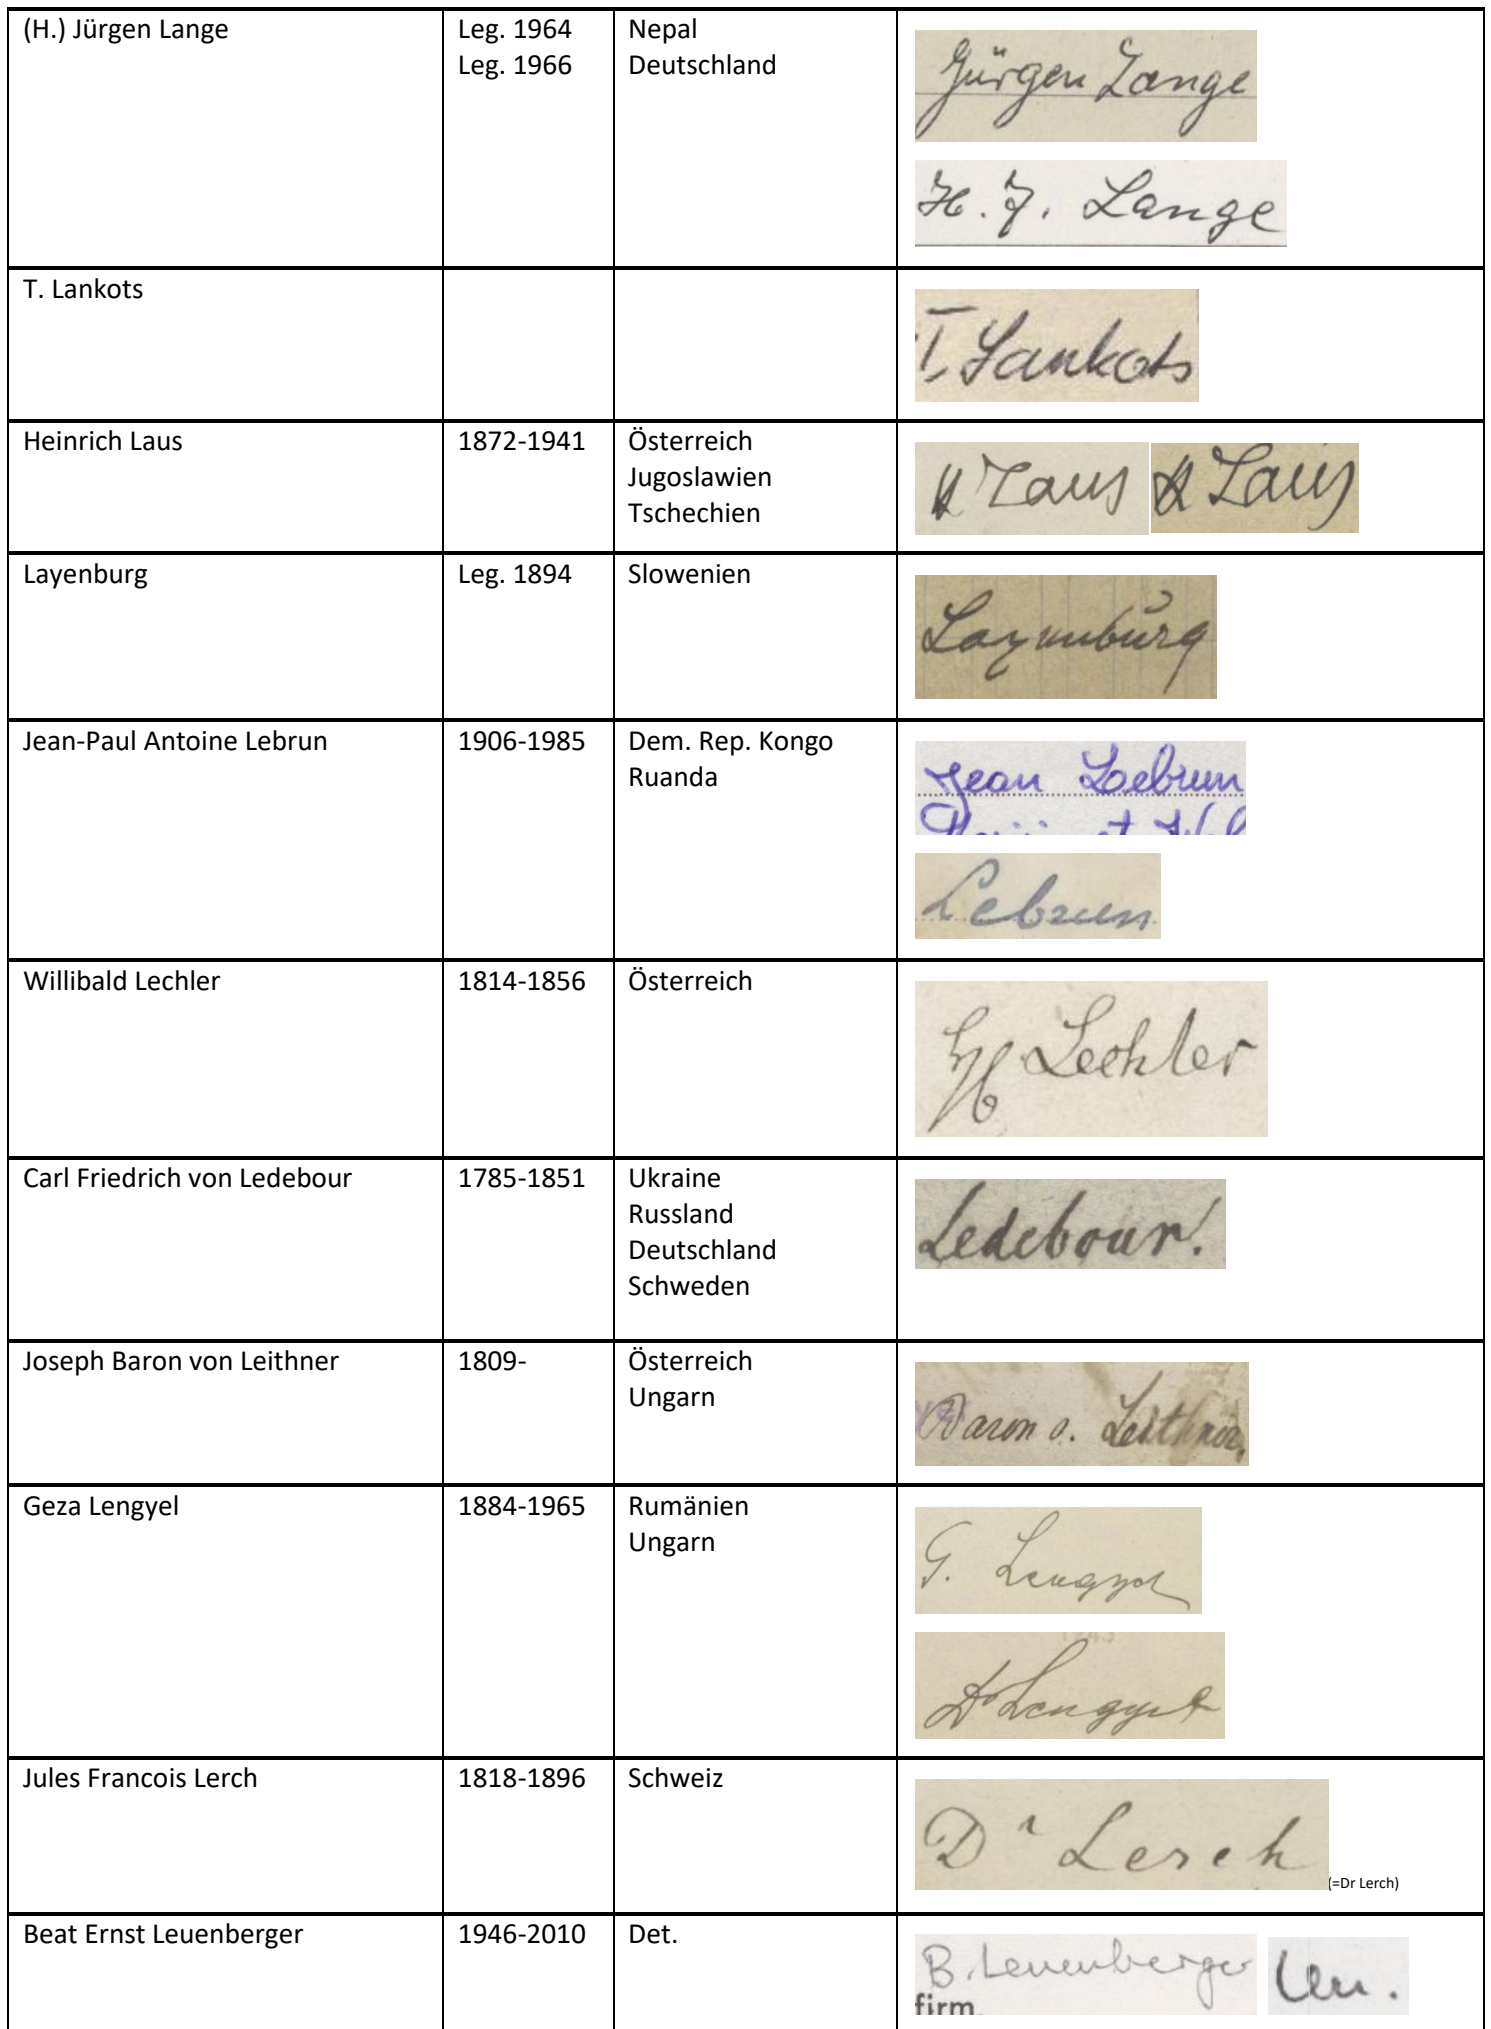 (H.) Jürgen Lange
Leg. 1964
Leg. 1966
Nepal
Deutschland
Jürgen Lange
H. J. Lange
T. Lankots
T. Lankots
Heinrich Laus
1872-1941
Österreich
Jugoslawien
Tschechien
H Laus H Laus
Layenburg
Leg. 1894
Slowenien
Layenburg
Jean-Paul Antoine Lebrun
1906-1985
Dem. Rep. Kongo
Ruanda
Jean Lebrun
Lebrun
Willibald Lechler
1814-1856
Österreich
W Lechler
Carl Friedrich von Ledebour
1785-1851
Ukraine
Russland
Deutschland
Schweden
Ledebour!
Joseph Baron von Leithner
1809-
Österreich
Ungarn
Baron v. Leithner.
Geza Lengyel
1884-1965
Rumänien
Ungarn
G. Lengyel
Dr Lengyel
Jules Francois Lerch
1818-1896
Schweiz
Dr Lerch
(=Dr Lerch)
Beat Ernst Leuenberger
1946-2010
Det.
B. Leuenberger Leu.
firm.